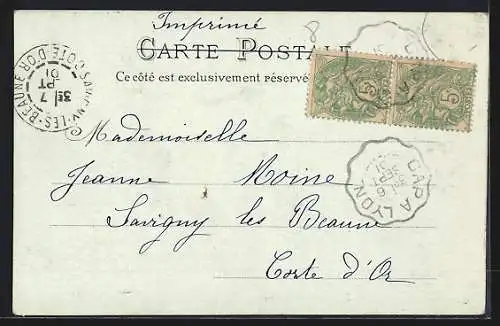 Imprimé
CARTE POSTALE
Ce côté est exclusivement réservé
5
5
SAVIGNY-LES-BEAUNE
COTE-D'OR
7
SEPT
01
GAP A LYON
6
SEPT
Mademoiselle
Jeanne Moine
Savigny les Beaune
Corte d'Or